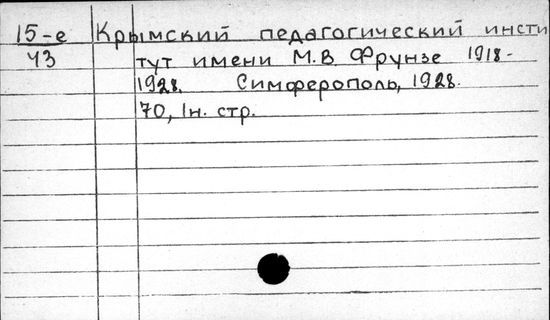 15-е Крымский педагогический инсти
43 тут имени М.В. Фрунзе 1918-
1928. Симферополь, 1928.
70, 1н. стр.